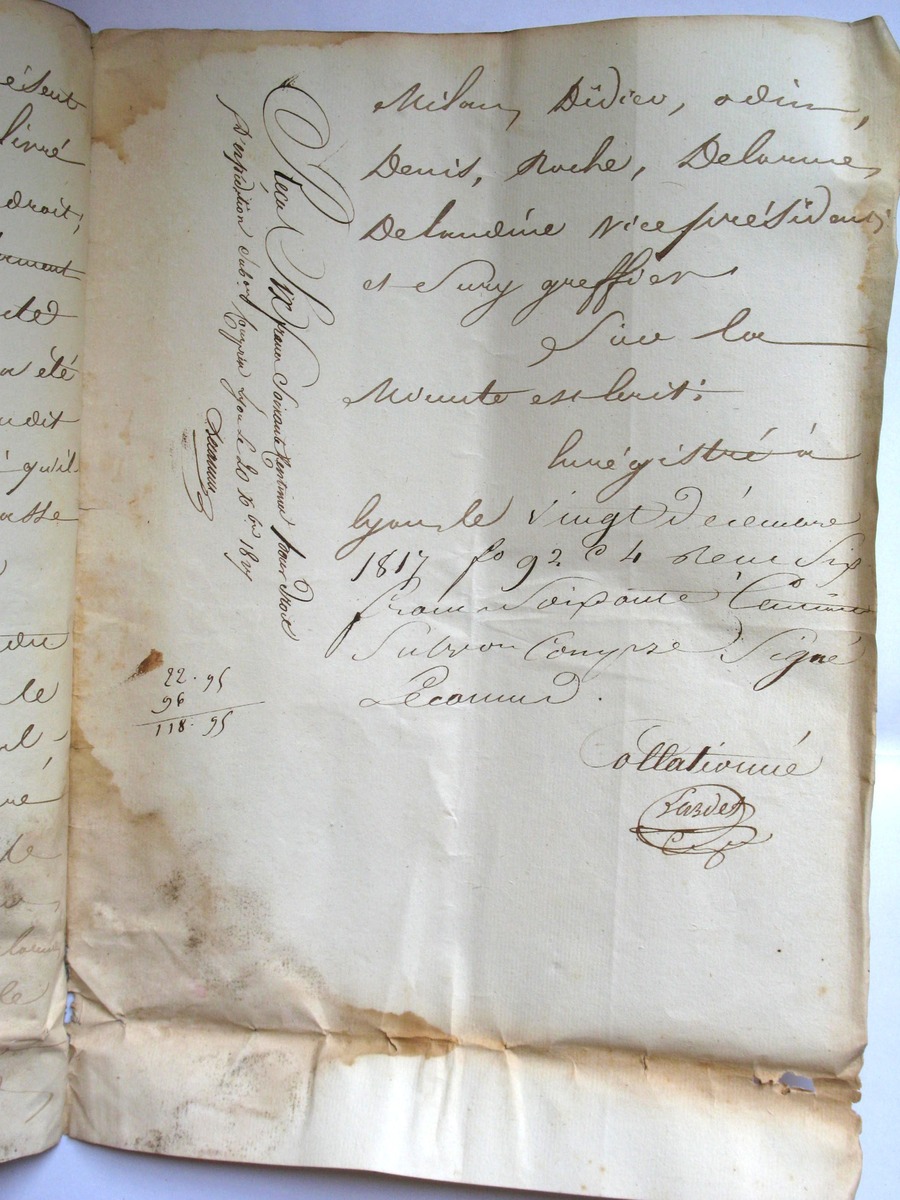 ésent
livré
droit;
été
udit
qu'il
asse
du
le
né
de
le
Milan, Didier, odin,
Denis, Roche, Delorme,
Delandine vice président
et Sury greffier
Sur la
Minute est Ecrit:
Enrégistré à
Lyon le vingt Décembre
1817 fo 92 C 4 Reçu Six
francs Soixante Centimes
Subvon Comprise. Signé
Lecamus.
Collationné
Reçu Six francs Soixante Centimes pour Droit
D'expédition Subon Comprise Lyon le 20 Xbre 1817
Lecamus
22. 95
96
118. 95